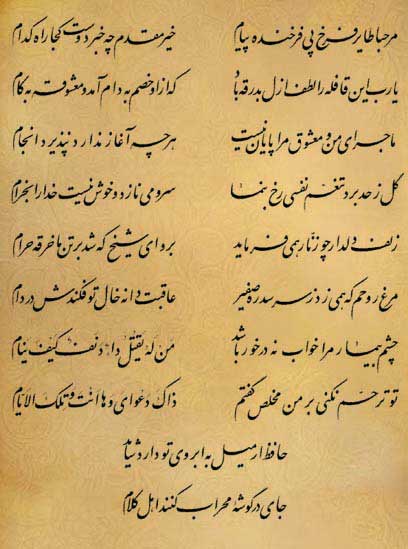 مرحبا طایر فرخ پی فرخنده پیام خیر مقدم چه خبر دوست کجا راه کدام
یارب این قافله را لطف ازل بدرقه باد که ازو خصم به دام آمد و معشوقه به کام
ماجرای من و معشوق مرا پایان نیست هرچه آغاز ندارد نپذیرد انجام
گل ز حد برد تنعم نفسی رخ بنما سرو می نازد و خوش نیست خدا را بخرام
زلف دلدار چو زنار همی فرماید برو ای شیخ که شد بر تن ما خرقه حرام
مرغ روحم که همی زد ز سر سدره صفیر عاقبت دانه خال تو فکندش در دام
چشم بیمار مرا خواب نه درخور باشد مَن لَهُ یَقتُلُ داءٌ دَنَفٌ کَیفَ یَنام
تو ترحم نکنی بر من مخلص گفتم ذاکَ دَعوایَ وَ ها اَنتَ وَ تِلکَ الاَیّام
حافظ ار میل به ابروی تو دارد شاید
جای در گوشهٔ محراب کنند اهل کلام